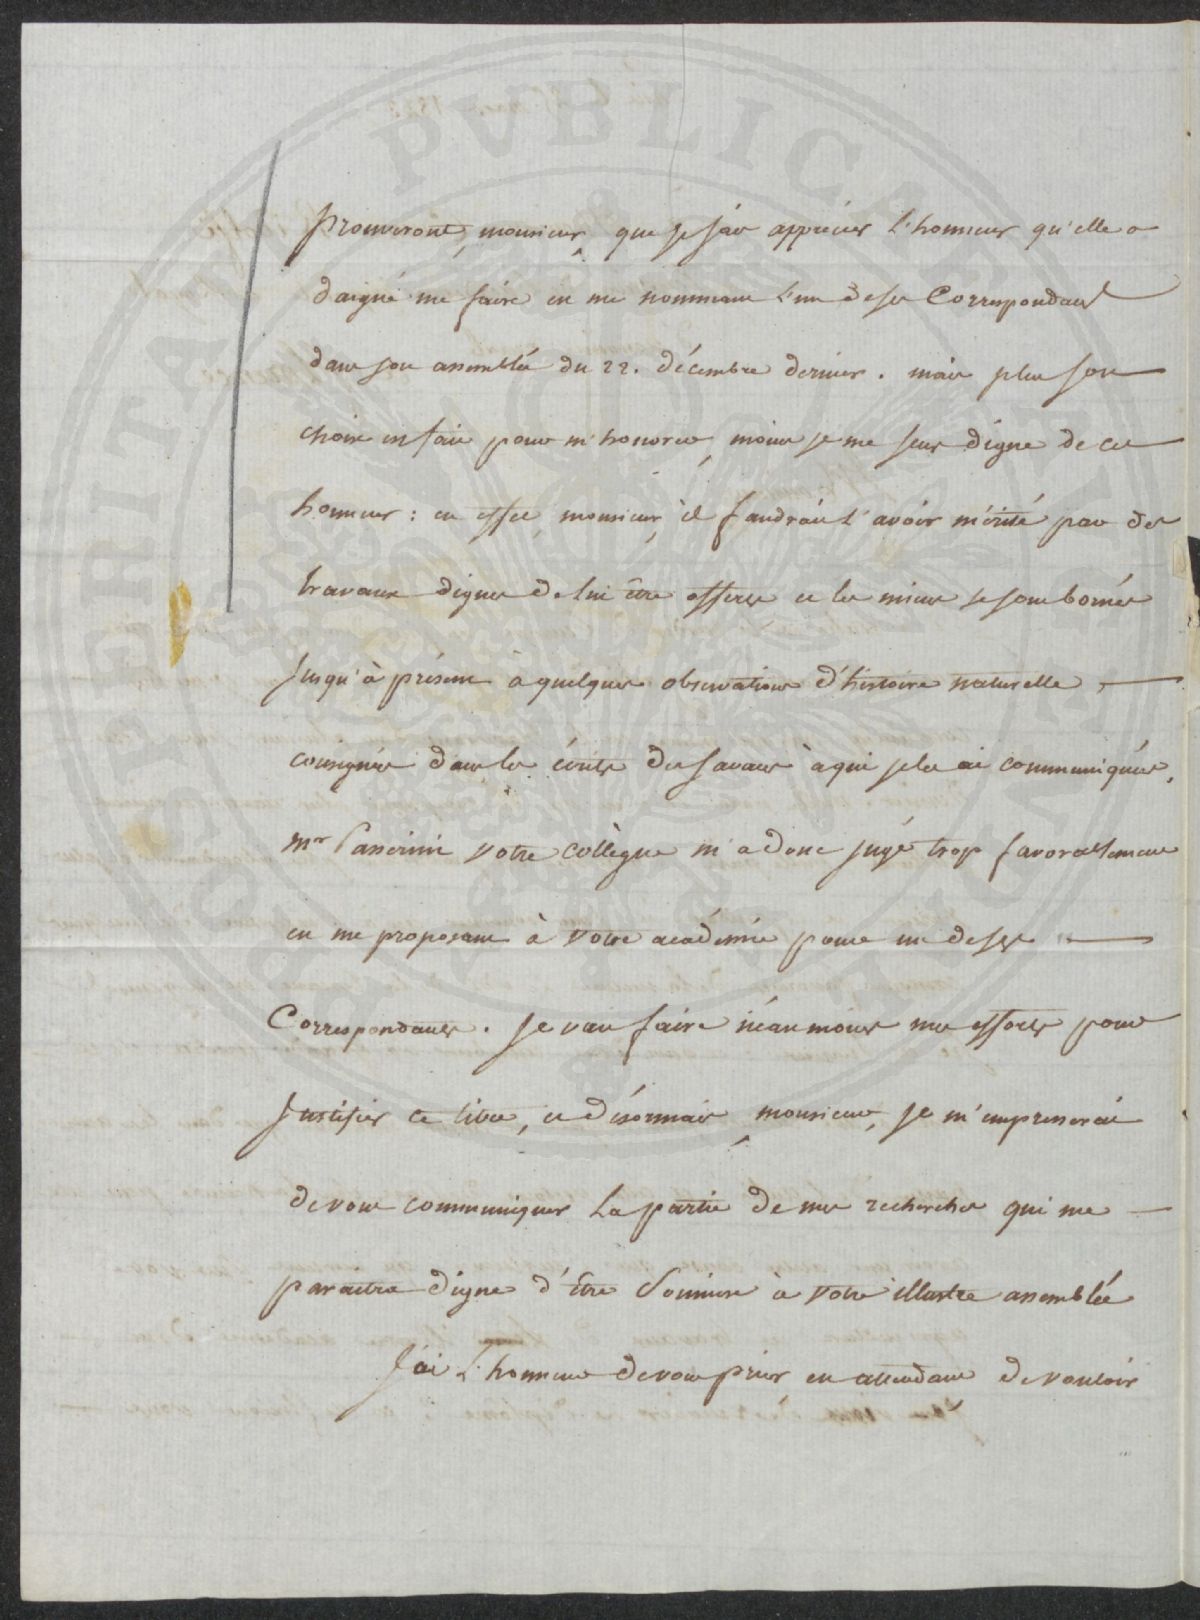 prouveront, monsieur, que je sais apprécier l'honneur qu'elle a
daigné me faire en me nommant l'un de ses Correspondans
dans son assemblée du 22. décembre dernier. mais plus son
choix est fait pour m'honorer, moins je me sens digne de cet
honneur: en effet, monsieur, il faudrait l'avoir mérité par des
travaux dignes de lui être offerts et les miens se sont bornés
jusqu'à présent à quelques observations d'histoire naturelle
consignées dans les écrits des savans à qui je les ai communiquées,
mr Passerini votre collègue m'a donc jugé trop favorablement
en me proposant à votre académie pour un de ses
Correspondants. je vais faire néanmoins mes efforts pour
justifier ce titre, et désormais, monsieur, je m'empresserai
de vous communiquer la partie de mes recherches qui me
paraitra digne d'être soumise à votre illustre assemblée
J'ai l'honneur de vous prier, en attendant de vouloir